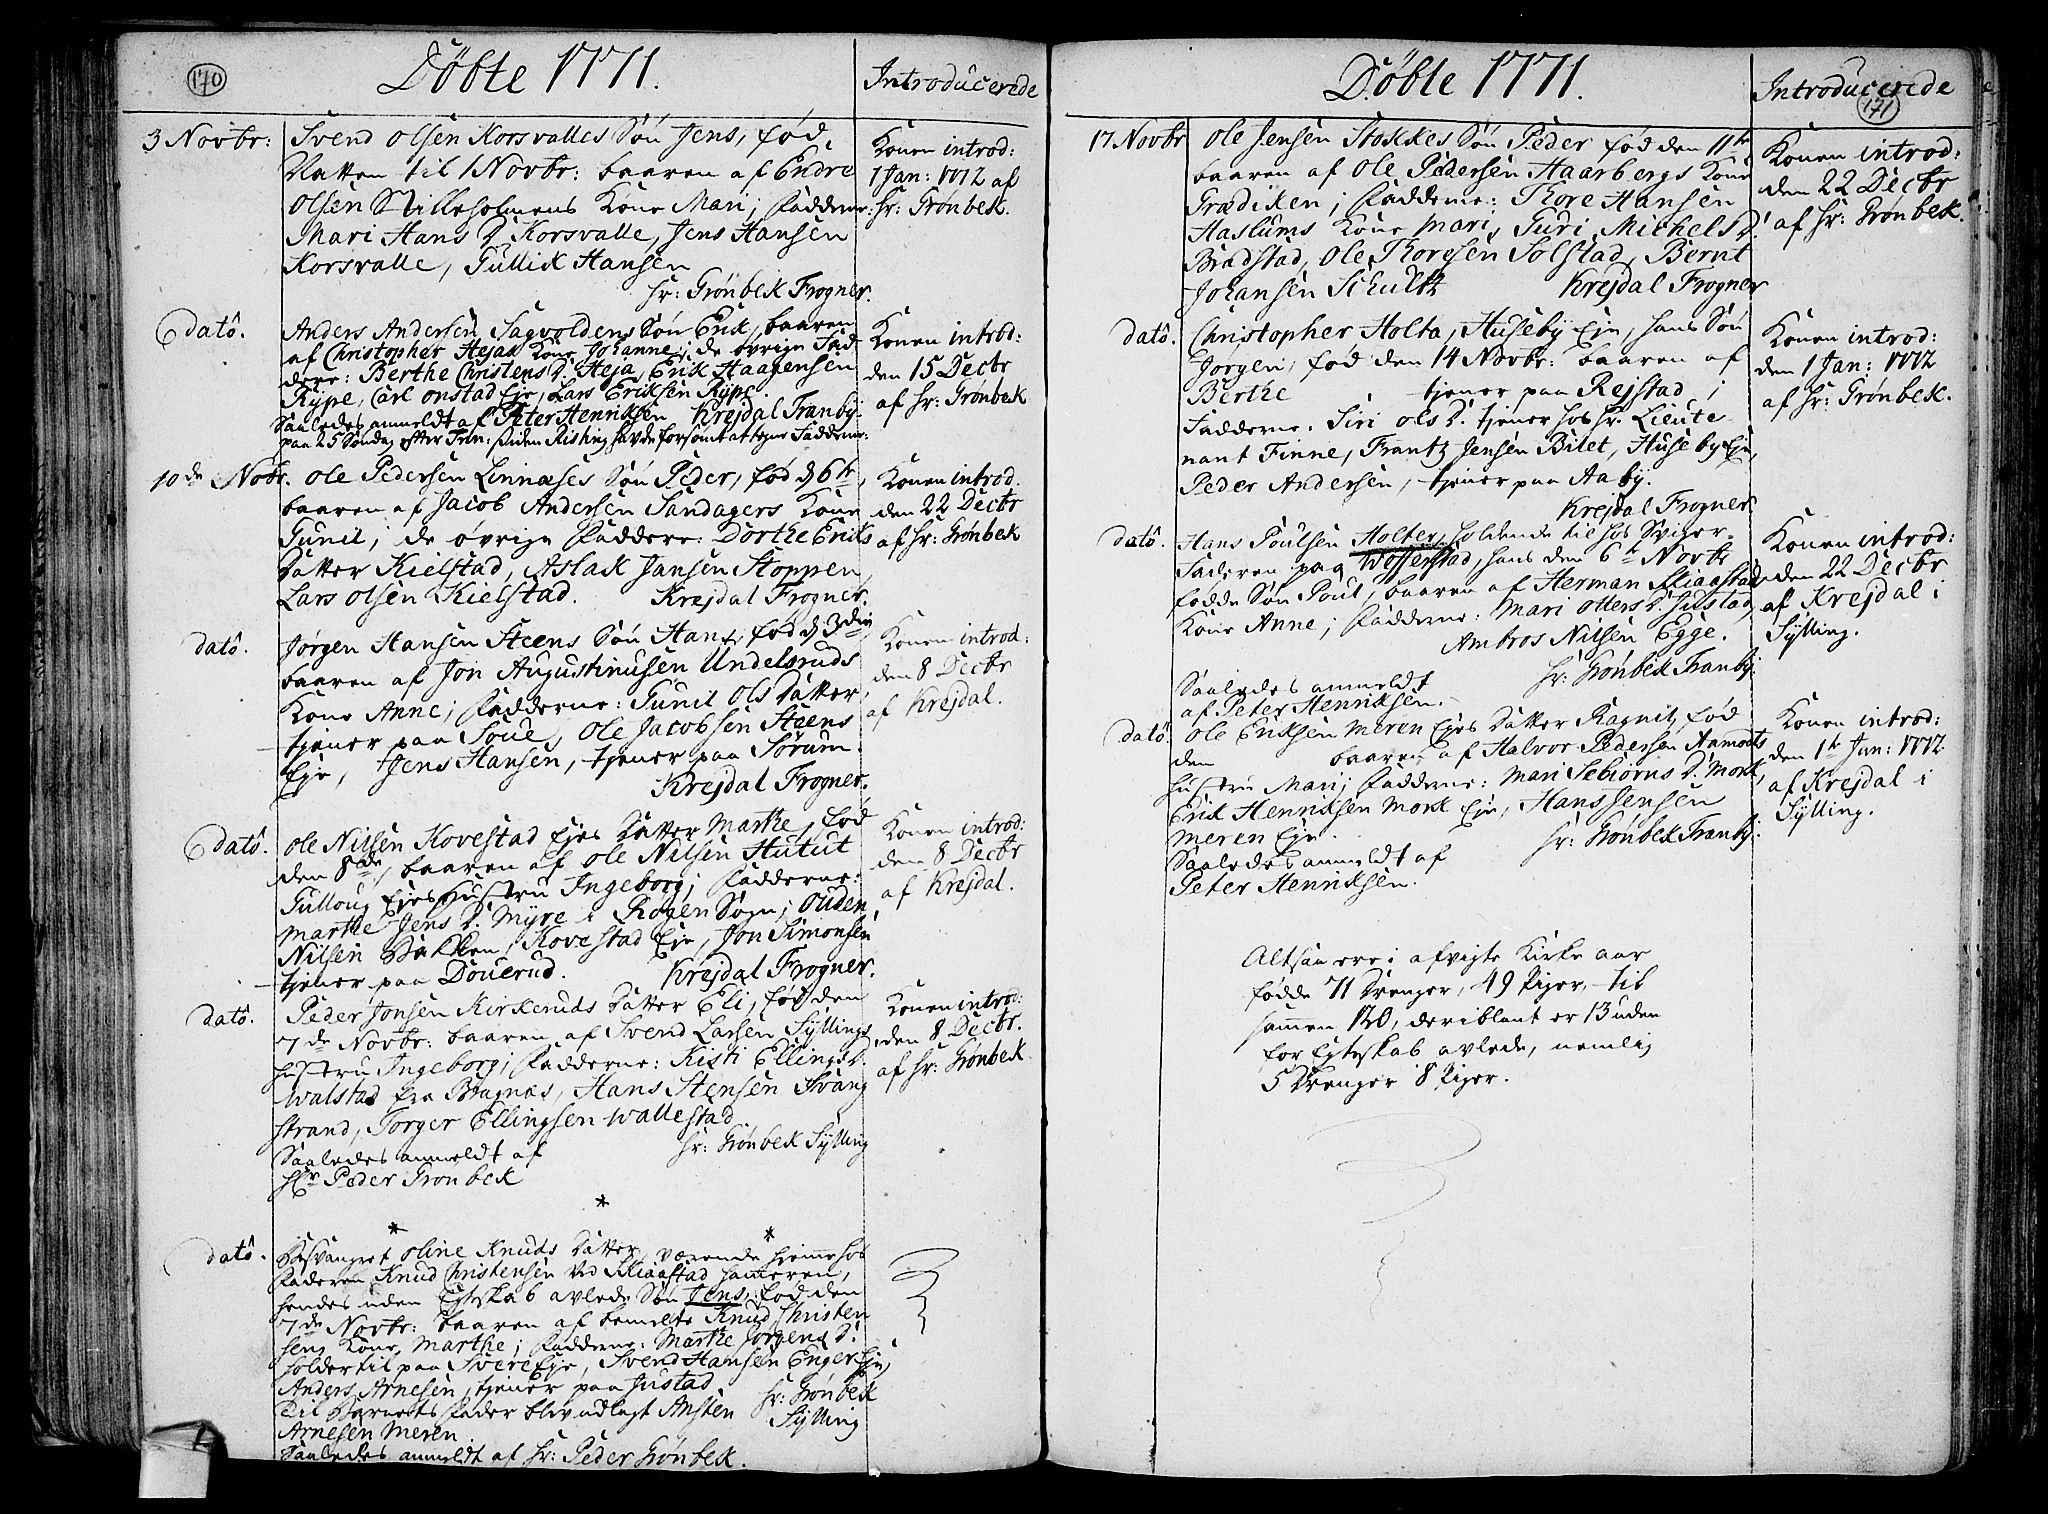 170
Döbte 1771.
Introducerede
3 Novbr:
Svend Olsen Korsvalles Sön Jens, föd
Natten til 1 Novbr: baaren af Endre
Olsen Stilleholmens Kone Mari; Faddere:
Mari Hans D. Korsvalle, Jens Hansen
Korsvalle, Gullik Hansen
Hr: Grönbek Frogner.
Konen introd:
1 Jan: 1772 af
Hr: Grönbek.
dato.
Anders Andersen Sagvoldens Sön Erik, baaren
af Christopher Hejas Kone Johanne; de övrige Fad-
dere: Berthe Christens D. Heja, Erik Haagensen
Rype, Carl Onstad Eje, Lars Eriksen Rype.
Saaledes anmeldt af Peter Henriksen Krejdal Tranby.
paa 25 Söndag efter Trin: siden Rising havde forsömt at tegne Fadderne:
Konen introd:
den 15 Decbr
af Hr: Grönbek
10de Novbr.
Ole Pedersen Linnæses Sön Peder, föd d 6te,
baaren af Jacob Andersen Sandagers Kone
Gunil; de övrige Faddere: Dorthe Eriks
Datter Kielstad, Aslak Jansen Stoppen,
Lars Olsen Kielstad. Krejdal Frogner.
Konen introd.
den 22 Decbr
af Hr: Grönbek
dato.
Jörgen Hansen Steens Sön Hans, föd d 3die
baaren af Jon Augustinusen Undelsruds
Kone Anne; Fadderne: Gunil Ols Datter,
tjener paa Soue, Ole Jacobsen Steens
Eje, Jens Hansen, tjener paa Sörum.
Krejdal Frogner.
Konen introd:
den 8 Decbr
af Krejdal.
dato.
Ole Nilsen Kovestad Ejes Datter Marthe, föd
den 8de, baaren af Ole Nilsen Hutut
Gulloug Ejes Hustru Ingeborg; Fadderne:
Marthe Jens D. Myre i Rögen Sogn; Ouden
Nilsen Bakken, Kovestad Eje, Jon Simonsen
tjener paa Douerud. Krejdal Frogner.
Konen introd:
den 8 Decbr
af Krejdal.
dato.
Peder Jonsen Kirkeruds Datter Eli, föd den
7de Novbr: baaren af Svend Larsen Syllings
Hustru Ingeborg; Fadderne: Kisti Ellings D.
Walstad fra Bragnæs, Hans Stensen Svang
strand, Torger Ellingsen Wallestad
Saaledes anmeldt af Hr: Grönbek Sylling
Hr Peder Grönbek
Konen introd:
den 8 Decbr.
af Hr: Grönbek
* * *
dato.
Besvangret Oline Knuds Datter, værende hjemme hos
Faderen Knud Christensen ved Skiaastad Hameren,
hendes uden Egteskab avlede Sön Jens, föd den
7de Novbr: baaren af bemelte Knud Christen
sens Kone Marthe; Fadderne: Marthe Jorgens D.
holder til paa Svere Eje, Svend Hansen Enger Eje,
Anders Arnesen, tjener paa Justad Hr: Grönbek
Til Barnets Fader blev udlagt Ansten Sylling
Arnesen Meren
Saaledes anmeldt af Hr: Peder Grönbek.
Döbte 1771.
Introducerede
171
17 Novbr
Ole Jensen Stokkes Sön Peder föd den 11te
baaren af Ole Pedersen Haarbergs Kone
Grædiken; Fadderne: Thore Hansen
Haslums Kone Mari, Guri Michels D.
Brådstad, Ole Thoresen Solstad, Bernt
Johansen Schultz Krejdal Frogner
Konen introd:
den 22 Decbr
af Hr: Grönbek.
dato.
Christopher Holta, Huseby Eje, hans Sön
Jörgen, föd den 14 Novbr: baaren af
Berthe tjener paa Rejstad;
Fadderne: Siri Ols D. tjener hos Hr. Lieute-
nant Finne, Frantz Jensen Bilet, Huseby Eje,
Peder Andersen, tjener paa Aaby.
Krejdal Frogner
Konen introd:
den 1 Jan: 1772
af Hr: Grönbek.
dato.
Hans Poulsen Holter, holdende til hos Sviger-
Faderen paa Weffenstad, hans den 6te Novbr
födde Sön Poul, baaren af Herman Skiaastad
Kone Anne; Fadderne: Mari Otters D. Justad,
Ambros Nilsen Egge.
Saaledes anmeldt Hr: Grönbek Tranby.
af Peter Henriksen.
Konen introd:
den 22 Decbr
af Krejdal i
Sylling.
dato.
Ole Eriksen Meren Ejes Datter Ragnil, föd
den baaren af Halvor Pedersen Aamodts
Hustru Mari; Fadderne: Mari Sebiörns D. Mork,
Erik Henriksen Mork Eje, Hans Jensen
Meren Eje. Hr: Grönbek Tranby.
Saaledes anmeldt af
Peter Henriksen.
Konen introd:
den 1te Jan: 1772
af Krejdal i
Sylling.
Altsaa ere i afvigte Kirke aar
födde 71 Drenger, 49 Piger, til
sammen 120, deriblant er 13 uden
for Egteskab avlede, nemlig
5 Drenger 8 Piger.